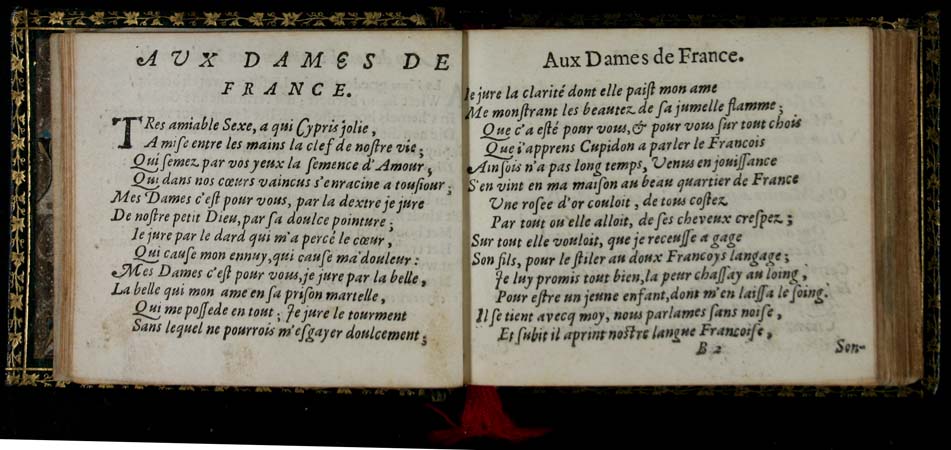 AUX DAMES DE
FRANCE.
TRes amiable Sexe, a qui Cypris jolie,
A mise entre les mains la clef de nostre vie;
Qui semez par vos yeux la semence d'Amour,
Qui dans nos cœurs vaincus s'enracine a tousiour;
Mes Dames c'est pour vous, par la dextre je jure
De nostre petit Dieu, par sa doulce pointure;
Ie jure par le dard qui m'a percé le cœur,
Qui cause mon ennuy, qui cause ma douleur:
Mes Dames c'est pour vous, je jure par la belle,
La belle qui mon ame en sa prison martelle,
Qui me possede en tout; Je jure le tourment
Sans lequel ne pourrois m'esgayer doulcement;
Aux Dames de France.
Ie jure la clarité dont elle paist mon ame
Me monstrant les beautez de sa jumelle flamme;
Que c'a esté pour vous, & pour vous sur tout chois
Que i'apprens Cupidon a parler le Francois
Ainsois n'a pas long temps, Venus en jouissance
S'en vint en ma maison au beau quartier de France
Une rosee d'or couloit, de tous costez
Par tout ou elle alloit, de ses cheveux crespez;
Sur tout elle vouloit, que je receusse a gage
Son fils, pour le stiler au doux Francoys langage;
Je luy promis tout bien, la peur chassay au loing,
Pour estre un jeune enfant, dont m'en laissa le soing.
Il se tient avecq moy, nous parlames sans noise,
Et subit il aprint nostre langue Francoise,
B 2 Son-